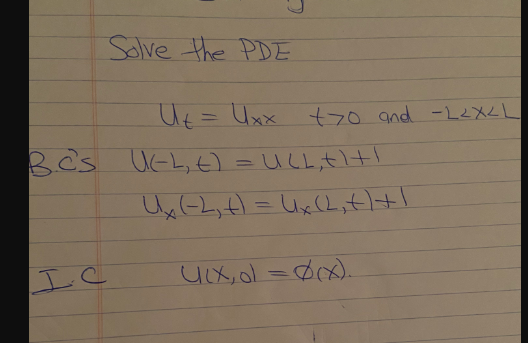 Solve the PDE
Ut = Uxx t>0 and -L<x<L
B.C's U(-L,t) = U(L,t)+1
Ux(-L,t) = Ux(L,t)+1
I.C U(x,0) = ϕ(x).